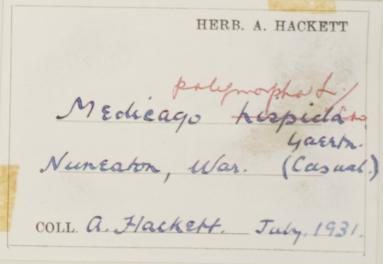 HERB. A. HACKETT
polymorpha L.
Medicago hispida
Gaertn.
Nuneaton, War. (Casual.)
COLL. A. Hackett. July, 1931.